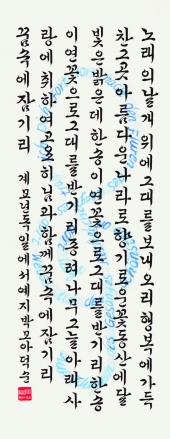 노래의날개위에그대를보내오리행복에가득
찬그곳아름다운나라로향기로운꽃동산에달
빛은밝은데한송이연꽃으로그대를반기리한송
이연꽃으로그대를반기리종려나무그늘아래사
랑에취하여고요히님과함께꿈속에잠기리
꿈속에잠기리 계묘년독일에서예지박모아덕순